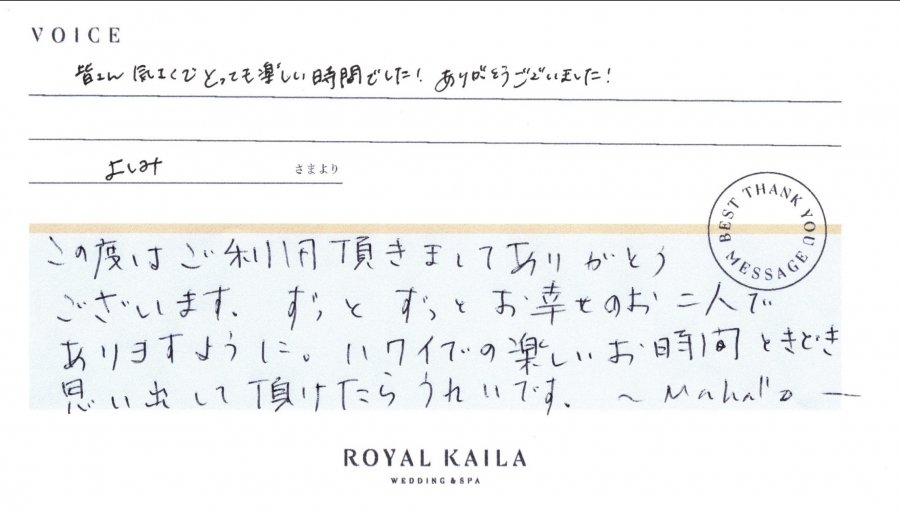 VOICE
皆さん気さくでとっても楽しい時間でした！ありがとうございました！
よしみ さまより
BEST THANK YOU MESSAGE
この度はご利用頂きましてありがとう
ございます。ずっとずっとお幸せのお二人で
ありますように。ハワイでの楽しいお時間ときどき
思い出して頂けたらうれいです。～Mahalo—
ROYAL KAILA
WEDDING & SPA